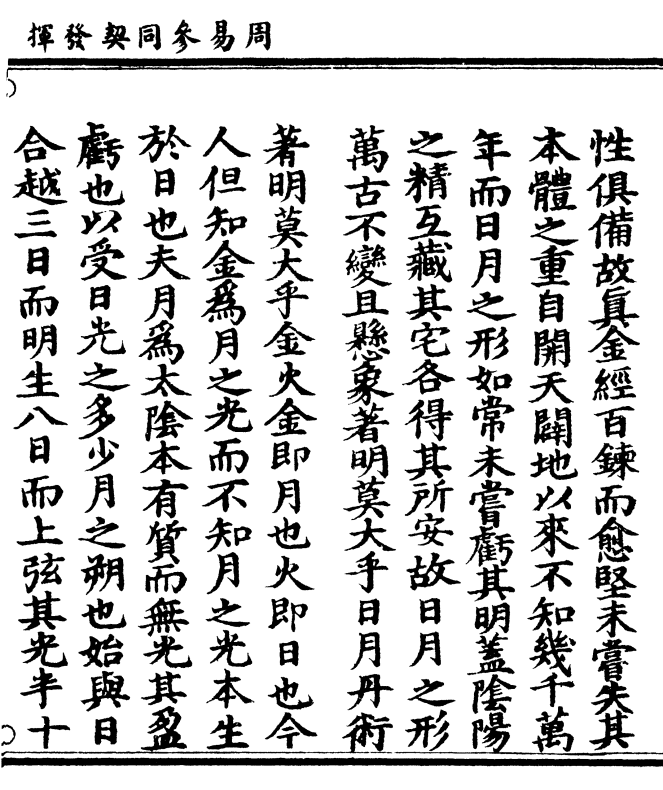 周易參同契發揮
性俱備故眞金經百鍊而愈堅未嘗失其
本體之重自開天闢地以來不知幾千萬
年而日月之形如常未嘗虧其明蓋陰陽
之精互藏其宅各得其所安故日月之形
萬古不變且懸象著明莫大乎日月丹術
著明莫大乎金火金即月也火即日也今
人但知金爲月之光而不知月之光本生
於日也夫月爲太陰本有質而無光其盈
虧也以受日光之多少月之朔也始與日
合越三日而明生八日而上弦其光半十